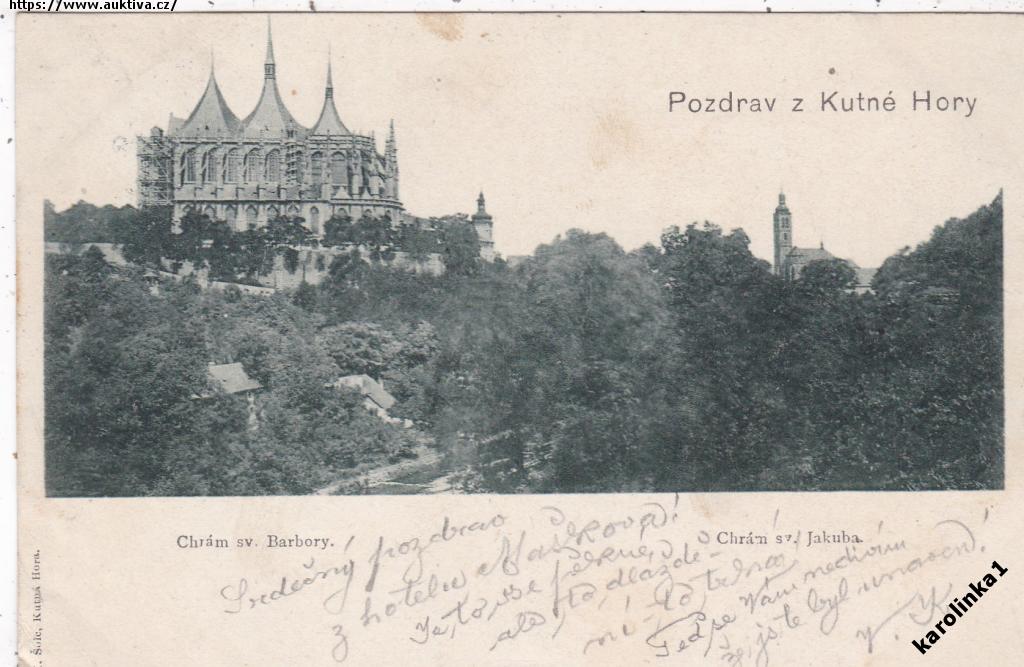 https://www.auktiva.cz/
Pozdrav z Kutné Hory
Chrám sv. Barbory.
Chrám sv. Jakuba.
Srdečný pozdrav
z hotelu
Je to vše pěkné,
ale ta dlažba
Teď se Vám nedivím
že jste byl unavený!
V. K.
Šolc, Kutná Hora.
karolinka1